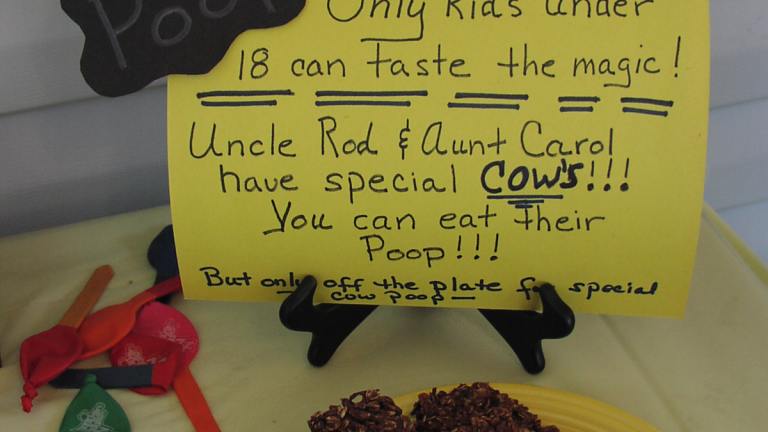 Poop
Only kids under
18 can taste the magic!
Uncle Rod & Aunt Carol
have special COW'S!!!
You can eat their
Poop!!!
But only off the plate for special
cow poop—